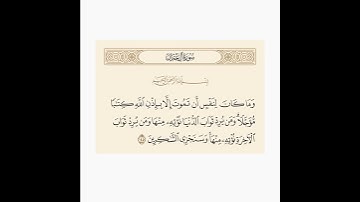 سورة آل عمران
بسم الله الرحمن الرحيم
وَمَا كَانَ لِنَفْسٍ أَن تَمُوتَ إِلَّا بِإِذْنِ اللَّهِ كِتَٰبًا
مُّؤَجَّلًا وَمَن يُرِدْ ثَوَابَ الدُّنْيَا نُؤْتِهِۦ مِنْهَا وَمَن يُرِدْ ثَوَابَ
الْءَاخِرَةِ نُؤْتِهِۦ مِنْهَا وَسَنَجْزِى الشَّٰكِرِينَ